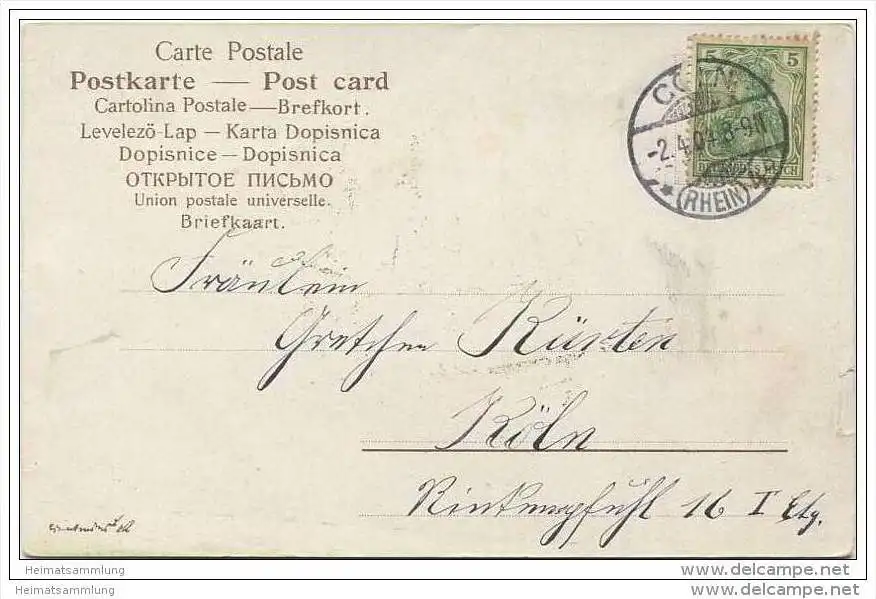 Carte Postale
Postkarte — Post card
Cartolina Postale—Brefkort.
Levelező-Lap — Karta Dopisnica
Dopisnice — Dopisnica
ОТКРЫТОЕ ПИСЬМО
Union postale universelle.
Briefkaart.
5
CÖLN
-2.4.04.8-9N
(RHEIN)
Fräulein
Gretchen Kürten
Köln
Rinkenpfuhl 16 I Etg.
Heimatsammlung
Heimatsammlung
delcampe.net
delcampe.net